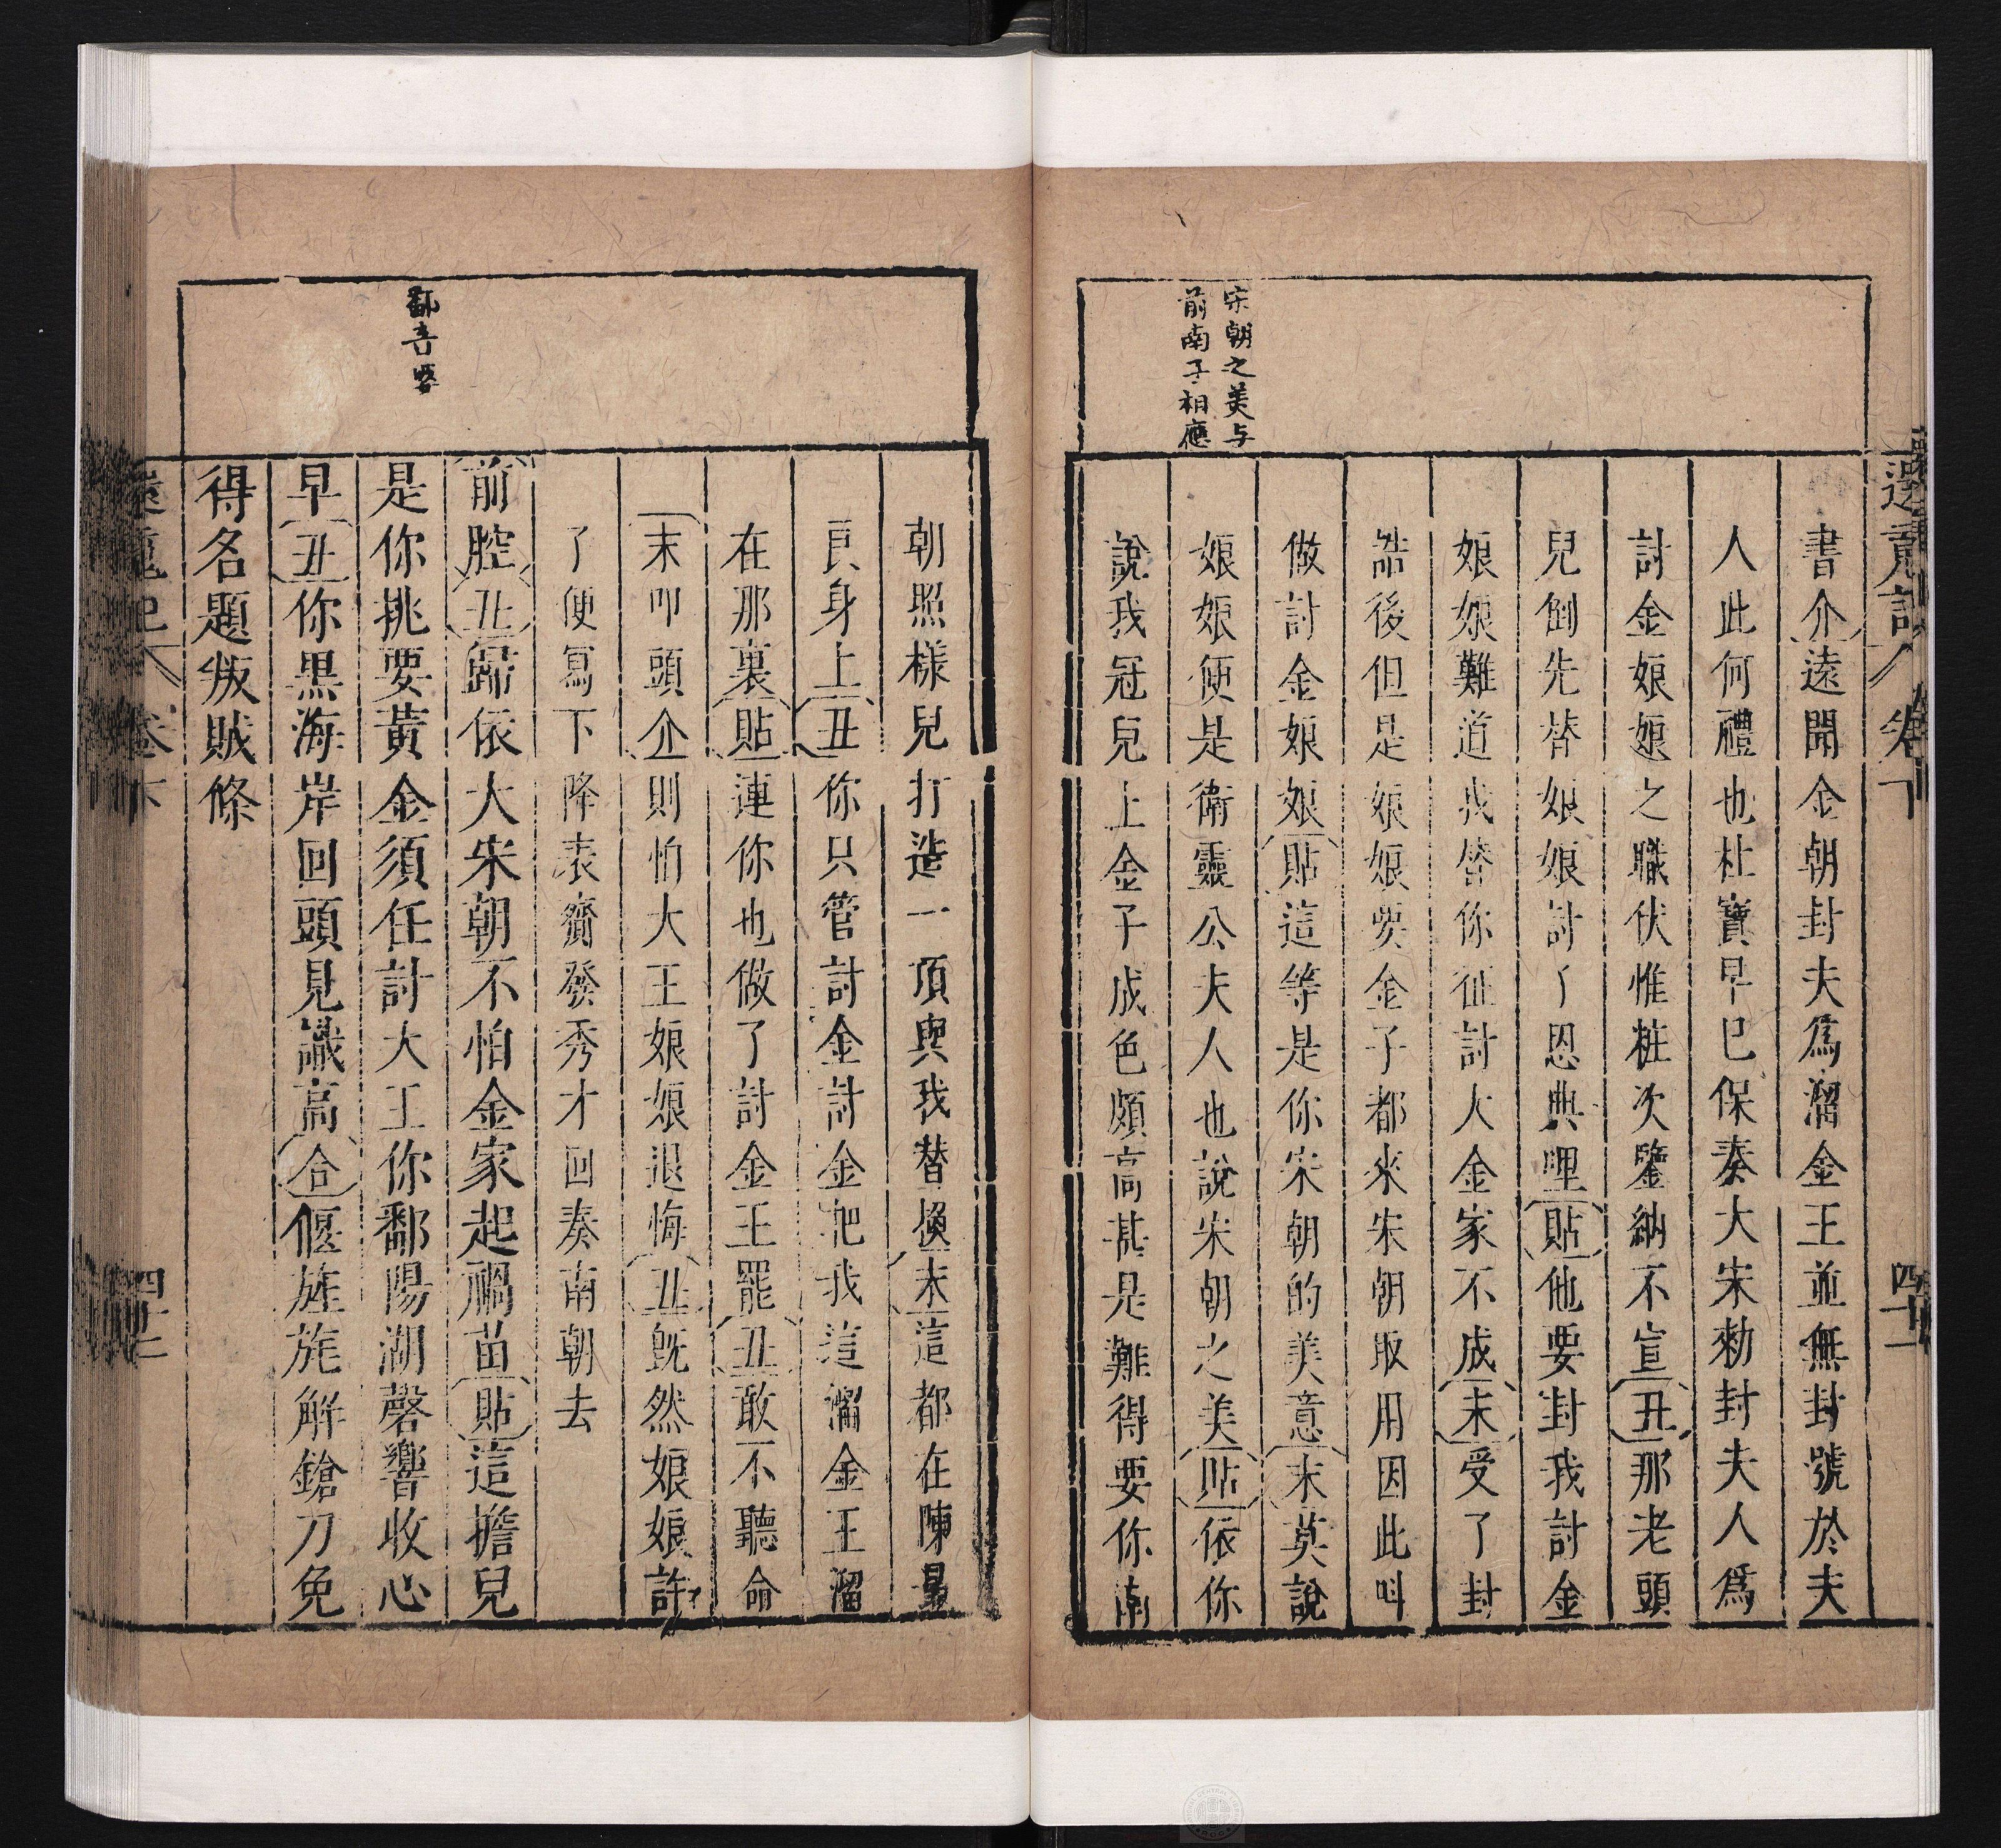 還魂記 卷下 四十一
宋朝之美与
前南子相應
書介遠聞金朝封夫爲溜金王並無封號於夫
人此何禮也杜寶早已保奏大宋勑封夫人爲
討金娘娘之職伏惟粧次鑒納不宣丑那老頭
兒倒先替娘娘討了恩典哩貼他要封我討金
娘娘難道我替你征討大金家不成末受了封
誥後但是娘娘要金子都來宋朝取用因此呌
做討金娘娘貼這等是你宋朝的美意末莫說
娘娘便是衛靈公夫人也說宋朝之美貼依你
說我冠兒上金子成色頗高甚是難得要你南
朝照樣兒打造一頂與我替換末這都在陳最
良身上丑你只管討金討金把我這溜金王溜
在那裏貼連你也做了討金王罷丑敢不聽命
末叩頭介則怕大王娘娘退悔丑旣然娘娘許
了便寫下降表賫發秀才回奏南朝去
鄱音婆
前腔丑歸依大宋朝不怕金家起禍苗貼這擔兒
是你挑要黃金須任討大王你鄱陽湖磬響收心
早丑你黑海岸回頭見識高合偃旌旄解鎗刀免
得名題叛賊條
卷下